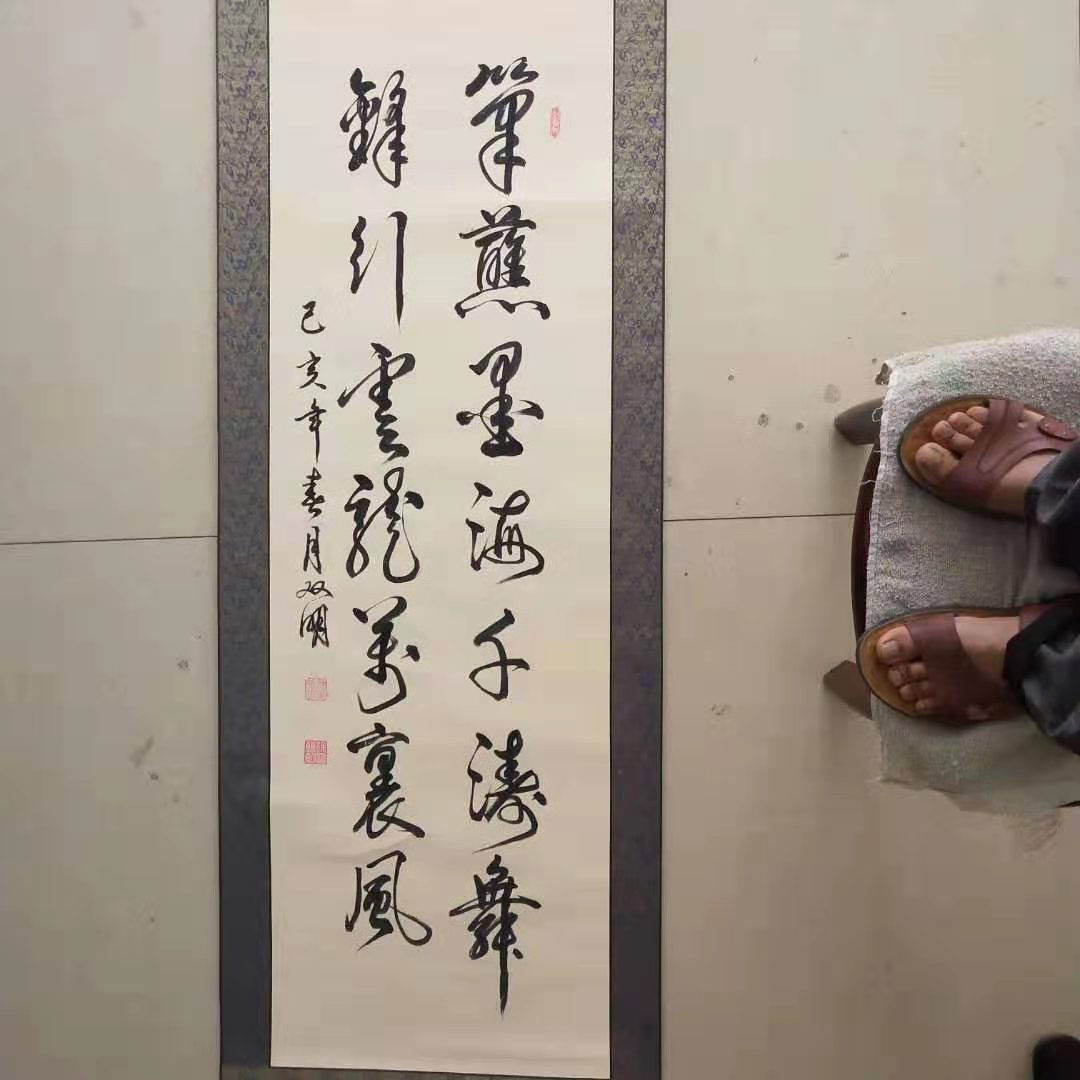 筆蘸墨海千濤舞
鋒引雲龍萬裏風
己亥年春月双明